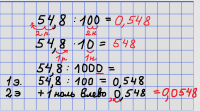 54,8 : 100 = 0,548
2л 2н
54,8 : 10 = 548
1л 1н
54,8 : 1000 =
1э. 54,8 : 100 = 0,548
2э +1 ноль влево 0,548 = 0,0548